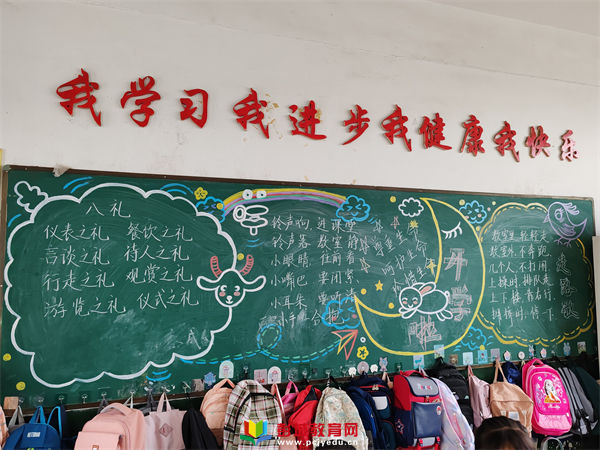 我学习我进步我健康我快乐
八礼
仪表之礼 餐饮之礼
言谈之礼 待人之礼
行走之礼 观赏之礼
游览之礼 仪式之礼
铃声响 进课堂
铃声落 教室静
小眼睛 往前看
小嘴巴 要闭紧
小耳朵
呵护生命
开学啦
走路歌
教室里 轻轻走
教室外 不奔跑
几个人 不打闹
上操时 排队走
上下楼 靠右行
教育网
www.pcjyedu.cn